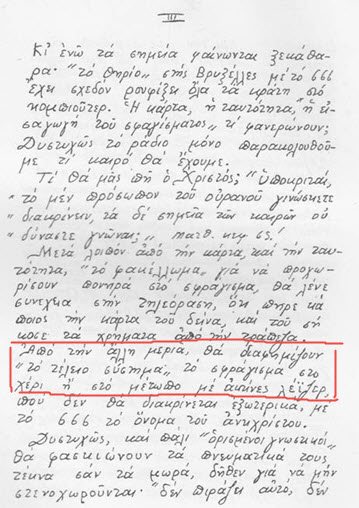 III
Κι ἐνῶ τά σημεῖα φαίνωνται ξεκάθα-
ρα· "τό θηρίο" στίς Βρυξέλλες μέ τό 666
ἔχει σχεδόν ρουφίξει ὅλα τά κράτη στό
κομπιοῦτερ. Ἡ κάρτα, ἡ ταυτότητα, ἡ εἰ-
σαγωγή τοῦ σφραγίσματος τί φανερώνουν;
Δυστυχῶς τό ράδιο μόνο παρακολουθοῦ-
με τί καιρό θά ἔχουμε.
Τί θά μᾶς πῇ ὁ Χριστός; "Ὑποκριταί,
"τό μέν πρόσωπον τοῦ οὐρανοῦ γινώσκετε
"διακρίνειν, τά δέ σημεῖα τῶν καιρῶν οὐ
"δύναστε γνῶναι;" Ματθ.
Μετά λοιπόν ἀπό τήν κάρτα, καί τήν ταυ-
τότητα, "τό φακέλλωμα", γιά νά προχω-
ρίσουν πονηρά στό σφράγισμα, θά λένε
συνεχῶς στήν τηλεόραση, ὅτι πῆρε κά-
ποιος τήν κάρτα τοῦ δεῖνα, καί τοῦ σή-
κωσε τά χρήματα ἀπό τήν τράπεζα.
Ἀπό τήν ἄλλη μεριά, θά διαφημίζουν
"τό τέλειο σύστημα", τό σφράγισμα στό
χέρι ἤ στό μέτωπο μέ ἀκτίνες λέϊζερ,
πού δέν θά διακρίνεται ἐξωτερικά, μέ
τό 666 τό ὄνομα τοῦ ἀντιχρίστου.
Δυστυχῶς, καί πάλι "ὁρισμένοι γνωστικοί"
θά φασκιώνουν τά πνευματικά τους
τέκνα σάν τά μωρά, δῆθεν γιά νά μήν
στενοχωροῦνται. "δέν πιράζει αὐτό, δέν